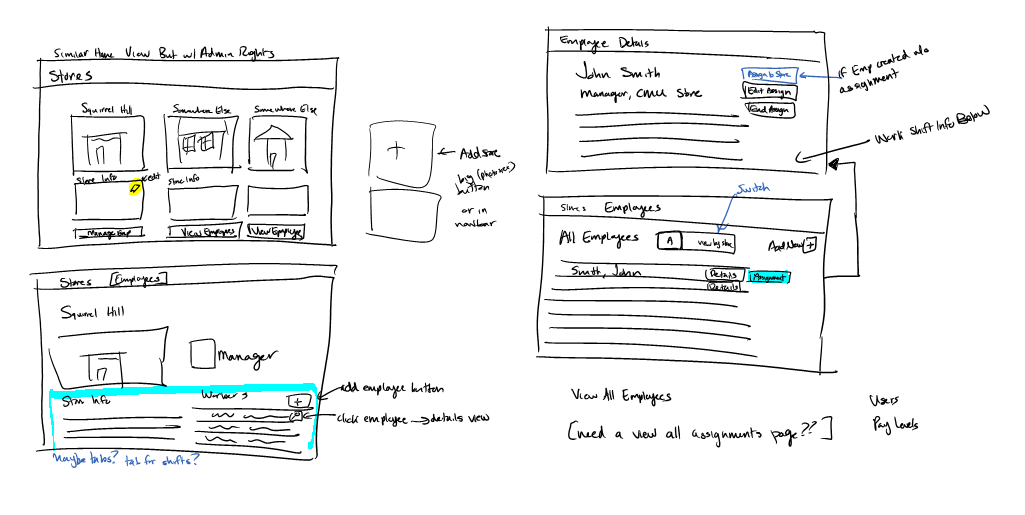 Similar Home View But w/ Admin Rights
Stores
Squirrel Hill
Somewhere Else
Somewhere Else
Store Info
edit
Store Info
Manage Emp
View Employees
View Employee
+
Add store
big (photo rec)
button
or in
navbar
Stores
Employees
Squirrel Hill
Manager
Store Info
Workers
+
add employee button
click employee → details view
Maybe tabs? tab for shifts?
Employee Details
John Smith
Manager, CMU Store
Assign to Store
Edit Assign
End Assign
if Emp created w/o
assignment
Work Shift Info Below
Switch
Stores Employees
All Employees
A
view by store
Add New +
Smith, John
Details
Assignment
Details
View All Employees
[need a view all assignments page??]
Users
Pay Levels